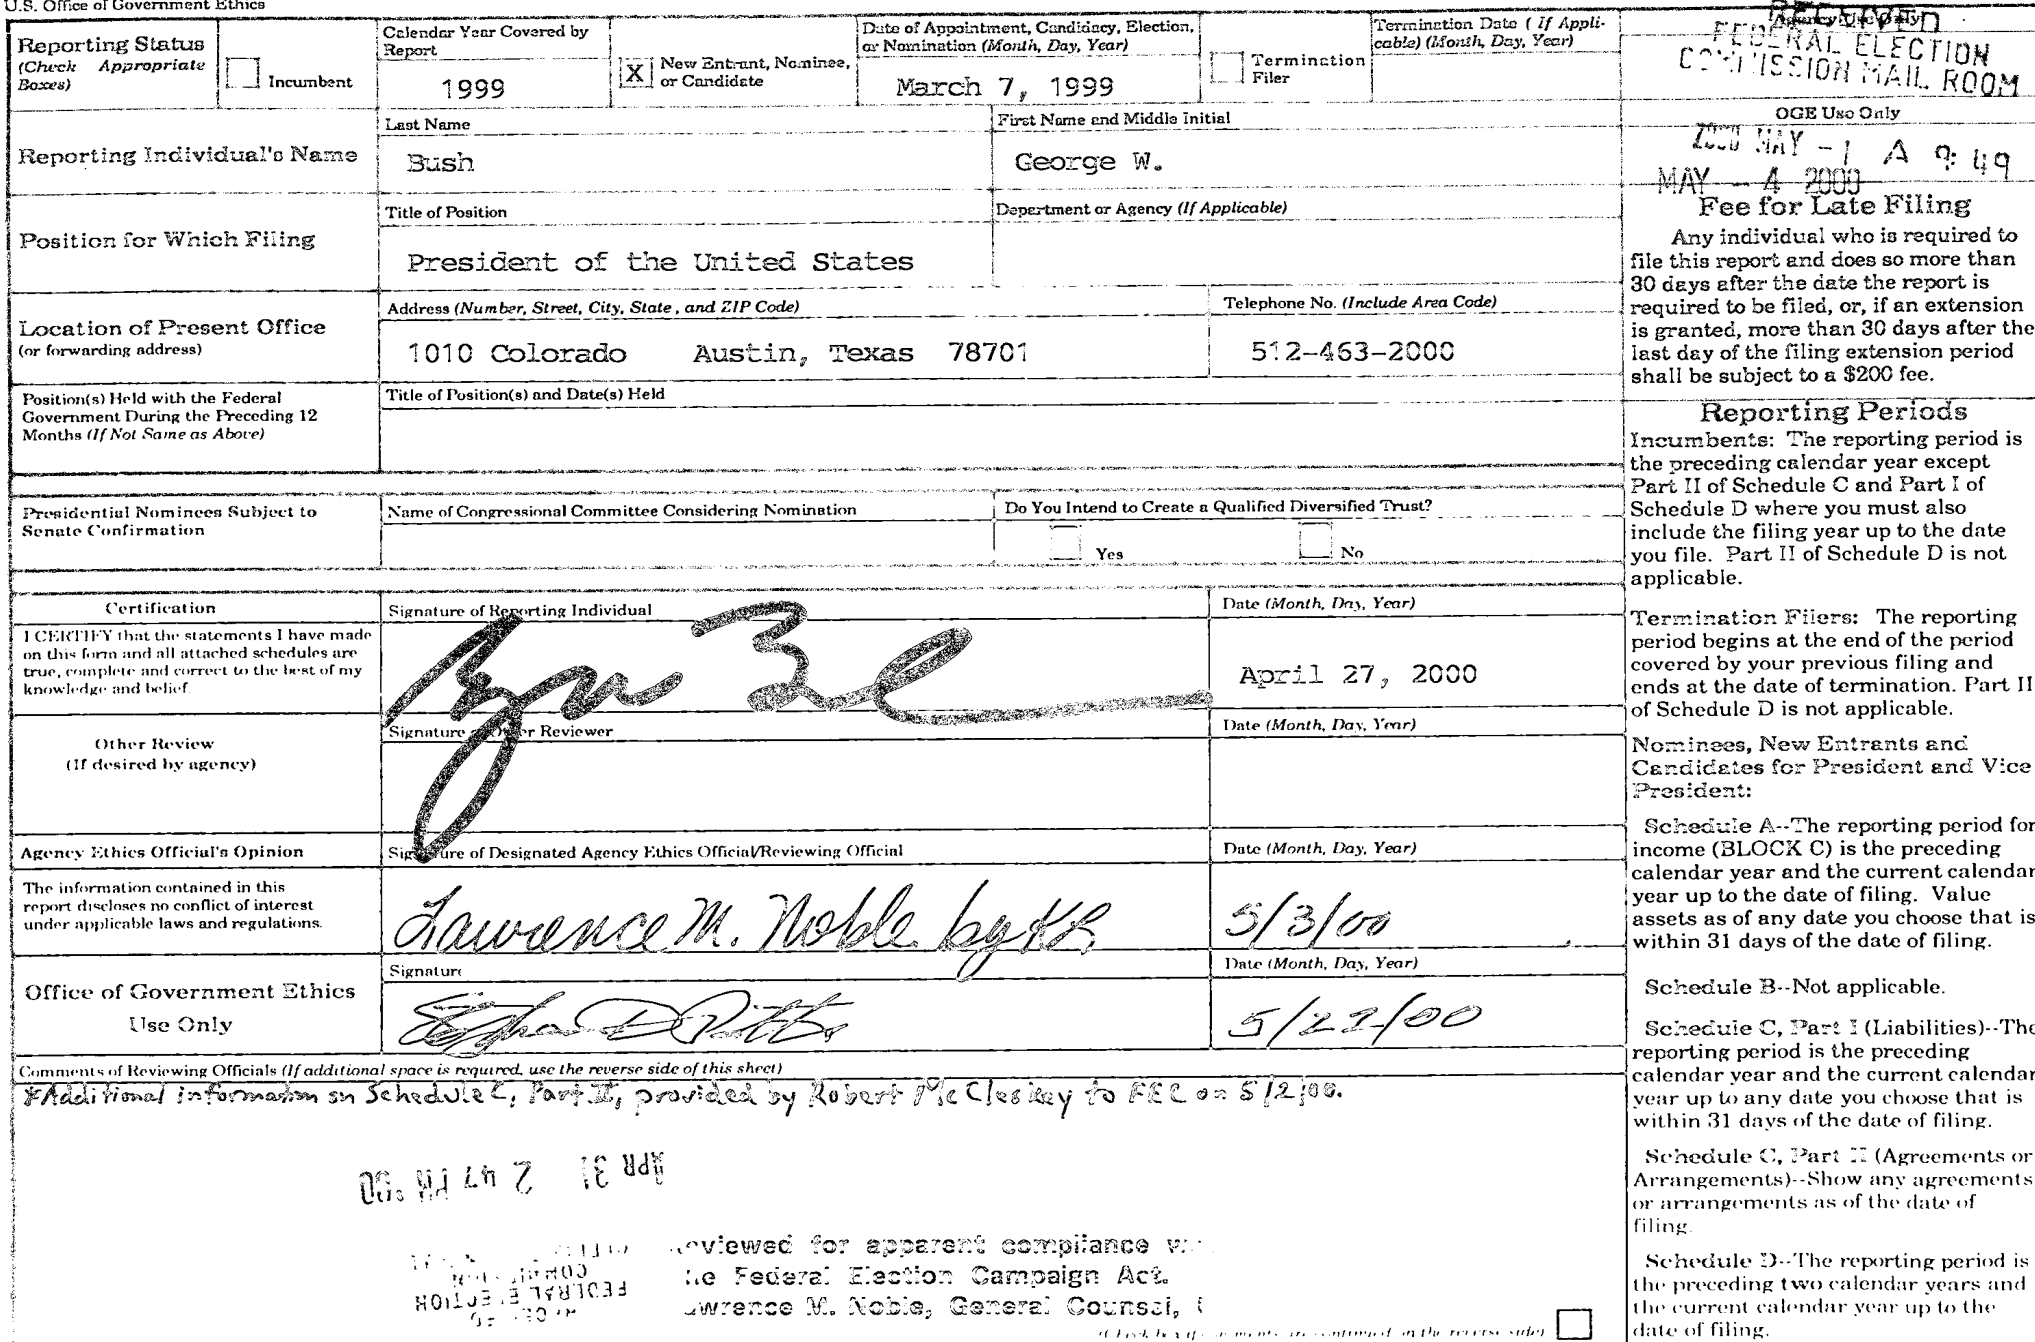 U.S. Office of Government Ethics
Reporting Status
(Check Appropriate
Boxes)
Incumbent
Calendar Year Covered by
Report
1999
X
New Entrant, Nominee,
or Candidate
Date of Appointment, Candidacy, Election,
or Nomination (Month, Day, Year)
March 7, 1999
Termination
Filer
Termination Date ( If Appli-
cable) (Month, Day, Year)
RECEIVED
Agency Use Only
FEDERAL ELECTION
COMMISSION MAIL ROOM
OGE Use Only
2000 MAY -1 A 9:49
MAY - 4 2000
Reporting Individual's Name
Last Name
Bush
First Name and Middle Initial
George W.
Position for Which Filing
Title of Position
President of the United States
Department or Agency (If Applicable)
Location of Present Office
(or forwarding address)
Address (Number, Street, City, State , and ZIP Code)
1010 Colorado Austin, Texas 78701
Telephone No. (Include Area Code)
512-463-2000
Position(s) Held with the Federal
Government During the Preceding 12
Months (If Not Same as Above)
Title of Position(s) and Date(s) Held
Presidential Nominees Subject to
Senate Confirmation
Name of Congressional Committee Considering Nomination
Do You Intend to Create a Qualified Diversified Trust?
Yes
No
Certification
I CERTIFY that the statements I have made
on this form and all attached schedules are
true, complete and correct to the best of my
knowledge and belief.
Signature of Reporting Individual
Date (Month, Day, Year)
April 27, 2000
Other Review
(If desired by agency)
Signature of Other Reviewer
Date (Month, Day, Year)
Agency Ethics Official's Opinion
The information contained in this
report discloses no conflict of interest
under applicable laws and regulations.
Signature of Designated Agency Ethics Official/Reviewing Official
Lawrence M. Noble by
Date (Month, Day, Year)
5/3/00
Office of Government Ethics
Use Only
Signature
Date (Month, Day, Year)
5/22/00
Comments of Reviewing Officials (If additional space is required, use the reverse side of this sheet)
*Additional information on Schedule C, Part II, provided by Robert McCleskey to FEC on 5/2/00.
APR 31 2 47 PM '00
FEDERAL ELECTION
eviewed for apparent compliance
he Federal Election Campaign Act.
awrence M. Noble, General Counsel,
Fee for Late Filing
Any individual who is required to
file this report and does so more than
30 days after the date the report is
required to be filed, or, if an extension
is granted, more than 30 days after the
last day of the filing extension period
shall be subject to a $200 fee.
Reporting Periods
Incumbents: The reporting period is
the preceding calendar year except
Part II of Schedule C and Part I of
Schedule D where you must also
include the filing year up to the date
you file. Part II of Schedule D is not
applicable.
Termination Filers: The reporting
period begins at the end of the period
covered by your previous filing and
ends at the date of termination. Part II
of Schedule D is not applicable.
Nominees, New Entrants and
Candidates for President and Vice
President:
Schedule A--The reporting period for
income (BLOCK C) is the preceding
calendar year and the current calendar
year up to the date of filing. Value
assets as of any date you choose that is
within 31 days of the date of filing.
Schedule B--Not applicable.
Schedule C, Part I (Liabilities)--The
reporting period is the preceding
calendar year and the current calendar
year up to any date you choose that is
within 31 days of the date of filing.
Schedule C, Part II (Agreements or
Arrangements)--Show any agreements
or arrangements as of the date of
filing.
Schedule D--The reporting period is
the preceding two calendar years and
the current calendar year up to the
date of filing.